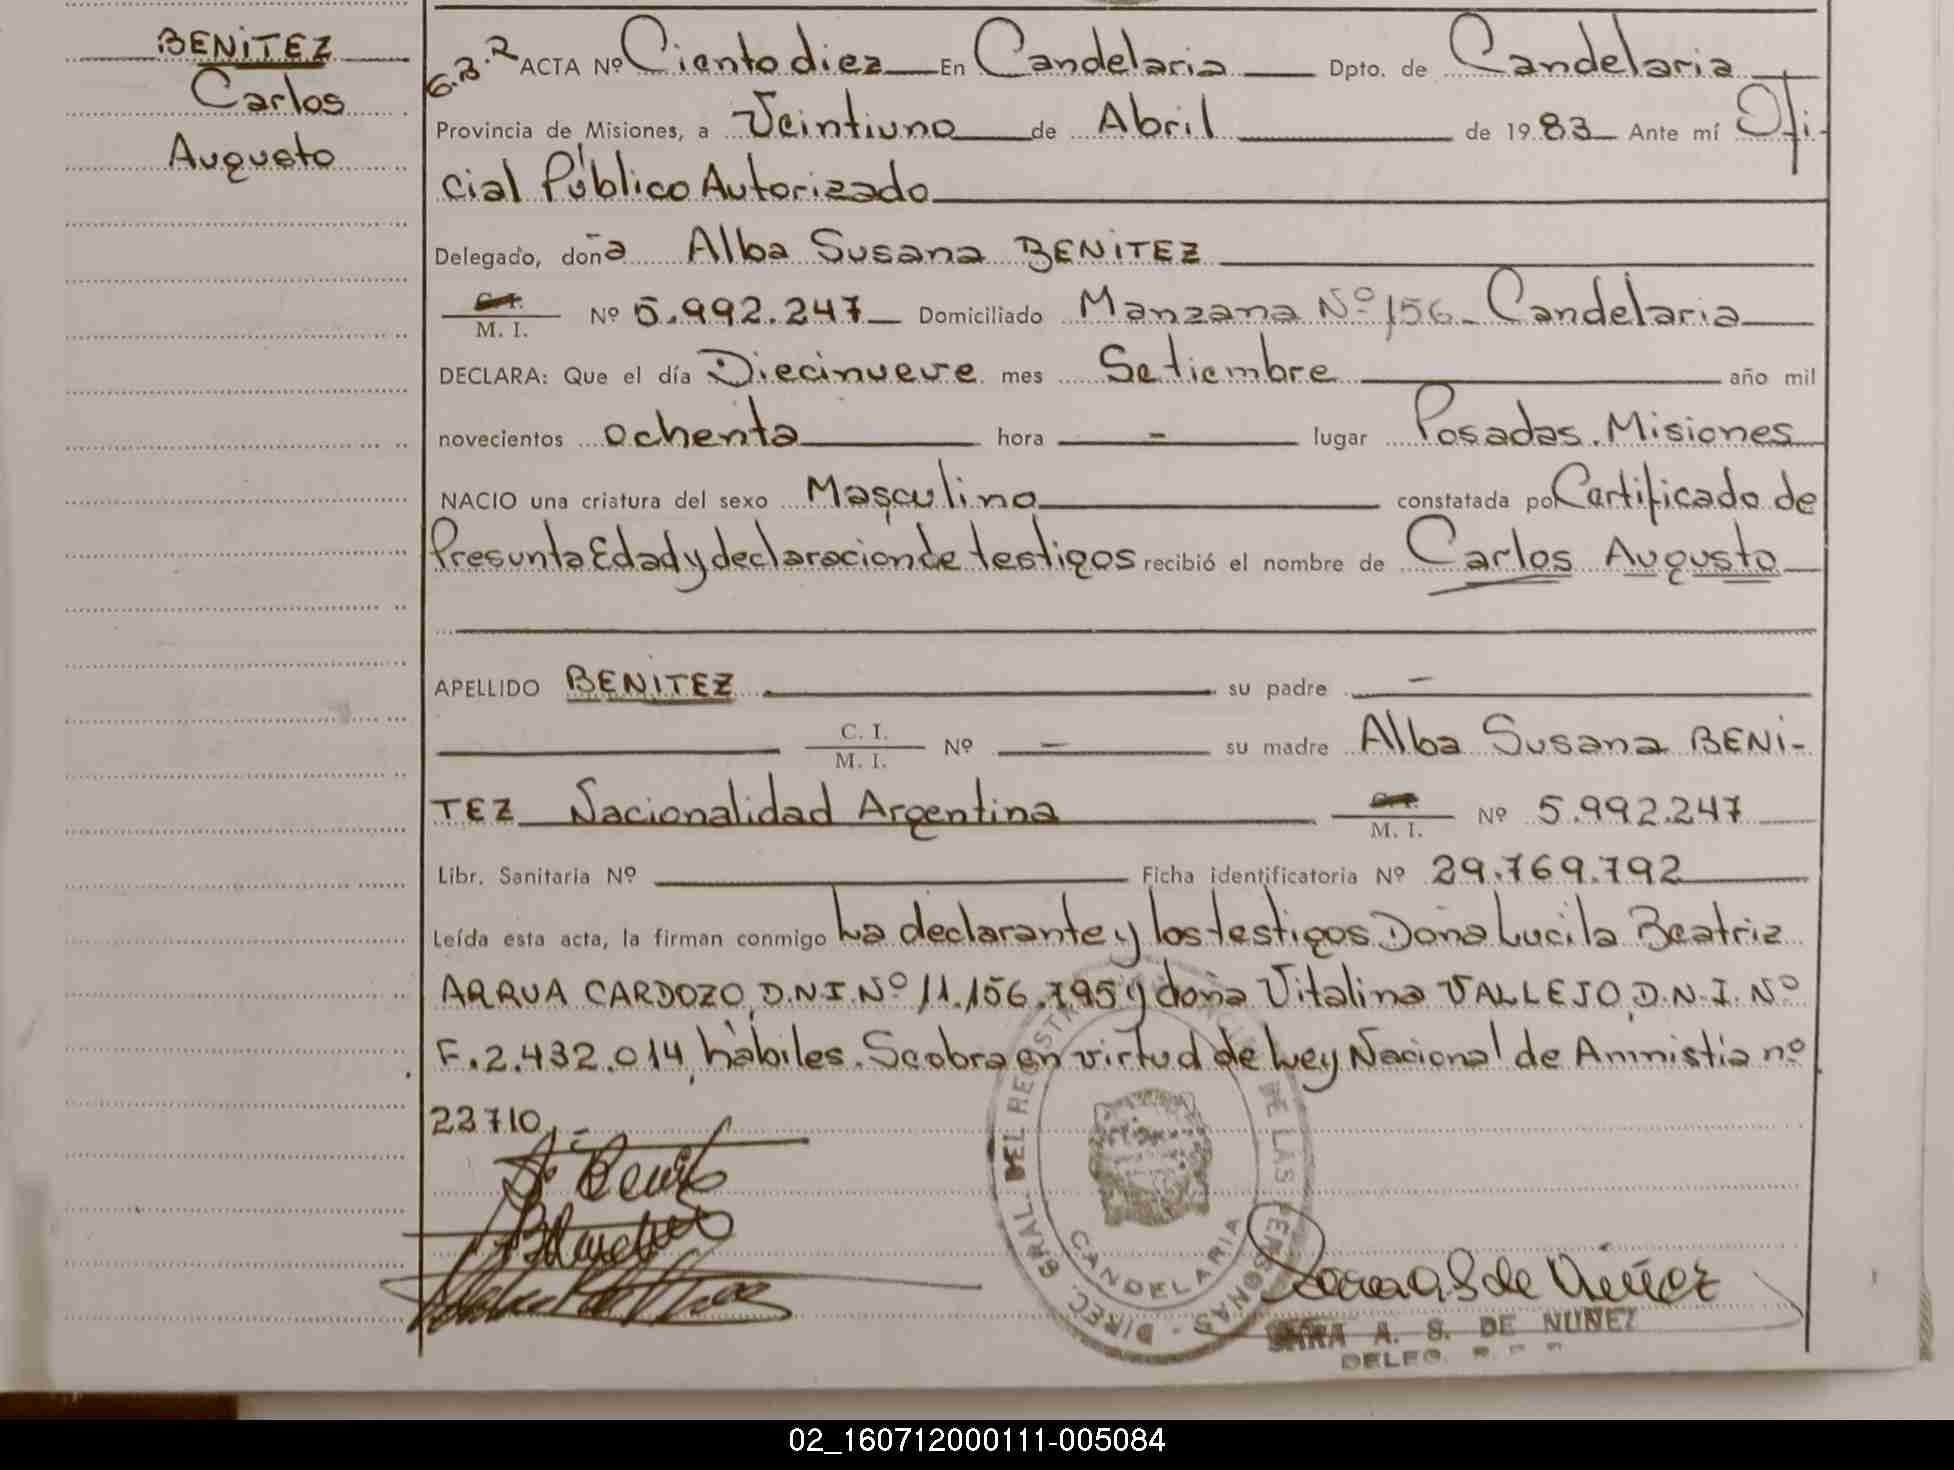 BENITEZ
Carlos
Augusto
6.3.2 ACTA Nº Ciento diez En Candelaria Dpto. de Candelaria
Provincia de Misiones, a Veintiuno de Abril de 1983 Ante mí Ofi-
cial Público Autorizado
Delegado, doña Alba Susana BENITEZ
M. I. Nº 5.992.247 Domiciliado Manzana Nº 156 Candelaria
DECLARA: Que el día Diecinueve mes Setiembre año mil
novecientos ochenta hora - lugar Posadas. Misiones
NACIO una criatura del sexo Masculino constatada por Certificado de
Presunta Edad y declaracion de testigos recibió el nombre de Carlos Augusto
APELLIDO BENITEZ su padre -
C. I.
M. I. Nº - su madre Alba Susana BENI-
TEZ Nacionalidad Argentina M. I. Nº 5.992.247
Libr. Sanitaria Nº Ficha identificatoria Nº 29.769.792
Leída esta acta, la firman conmigo La declarante y los testigos Doña Lucila Beatriz
ARRUA CARDOZO, D.N.I. Nº 11.156.795 y doña Vitalina VALLEJO, D.N.I. Nº
F. 2.432.014, hábiles. Se obra en virtud de Ley Nacional de Amnistia nº
23710,-
DIREC. GRAL. DEL REGISTRO DE LAS PERSONAS - CANDELARIA
Sara A S de Núñez
SARA A. S. DE NUÑEZ
DELEG.
02_160712000111-005084